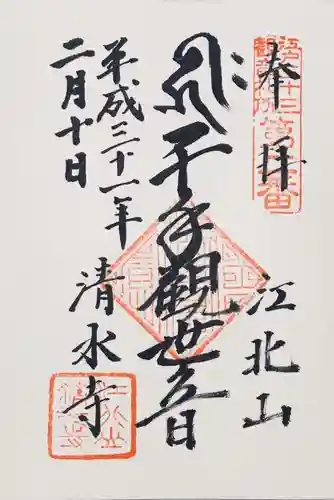 奉拝
江北山
千手観世音
平成三十一年
二月十日
清水寺